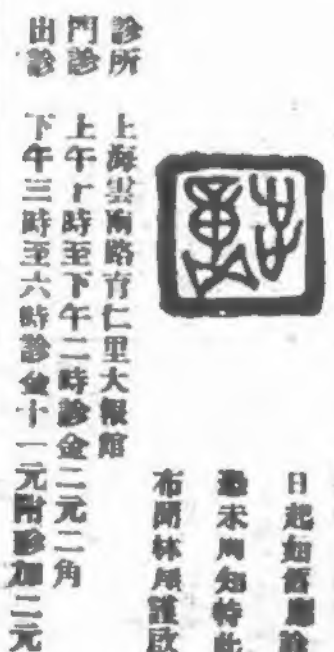 日起如舊應診
恐未周知特此
布聞林屋謹啟
診所　上海雲南路育仁里大報館
門診　上午十時至下午二時診金二元二角
出診　下午三時至六時診金十一元附診加二元